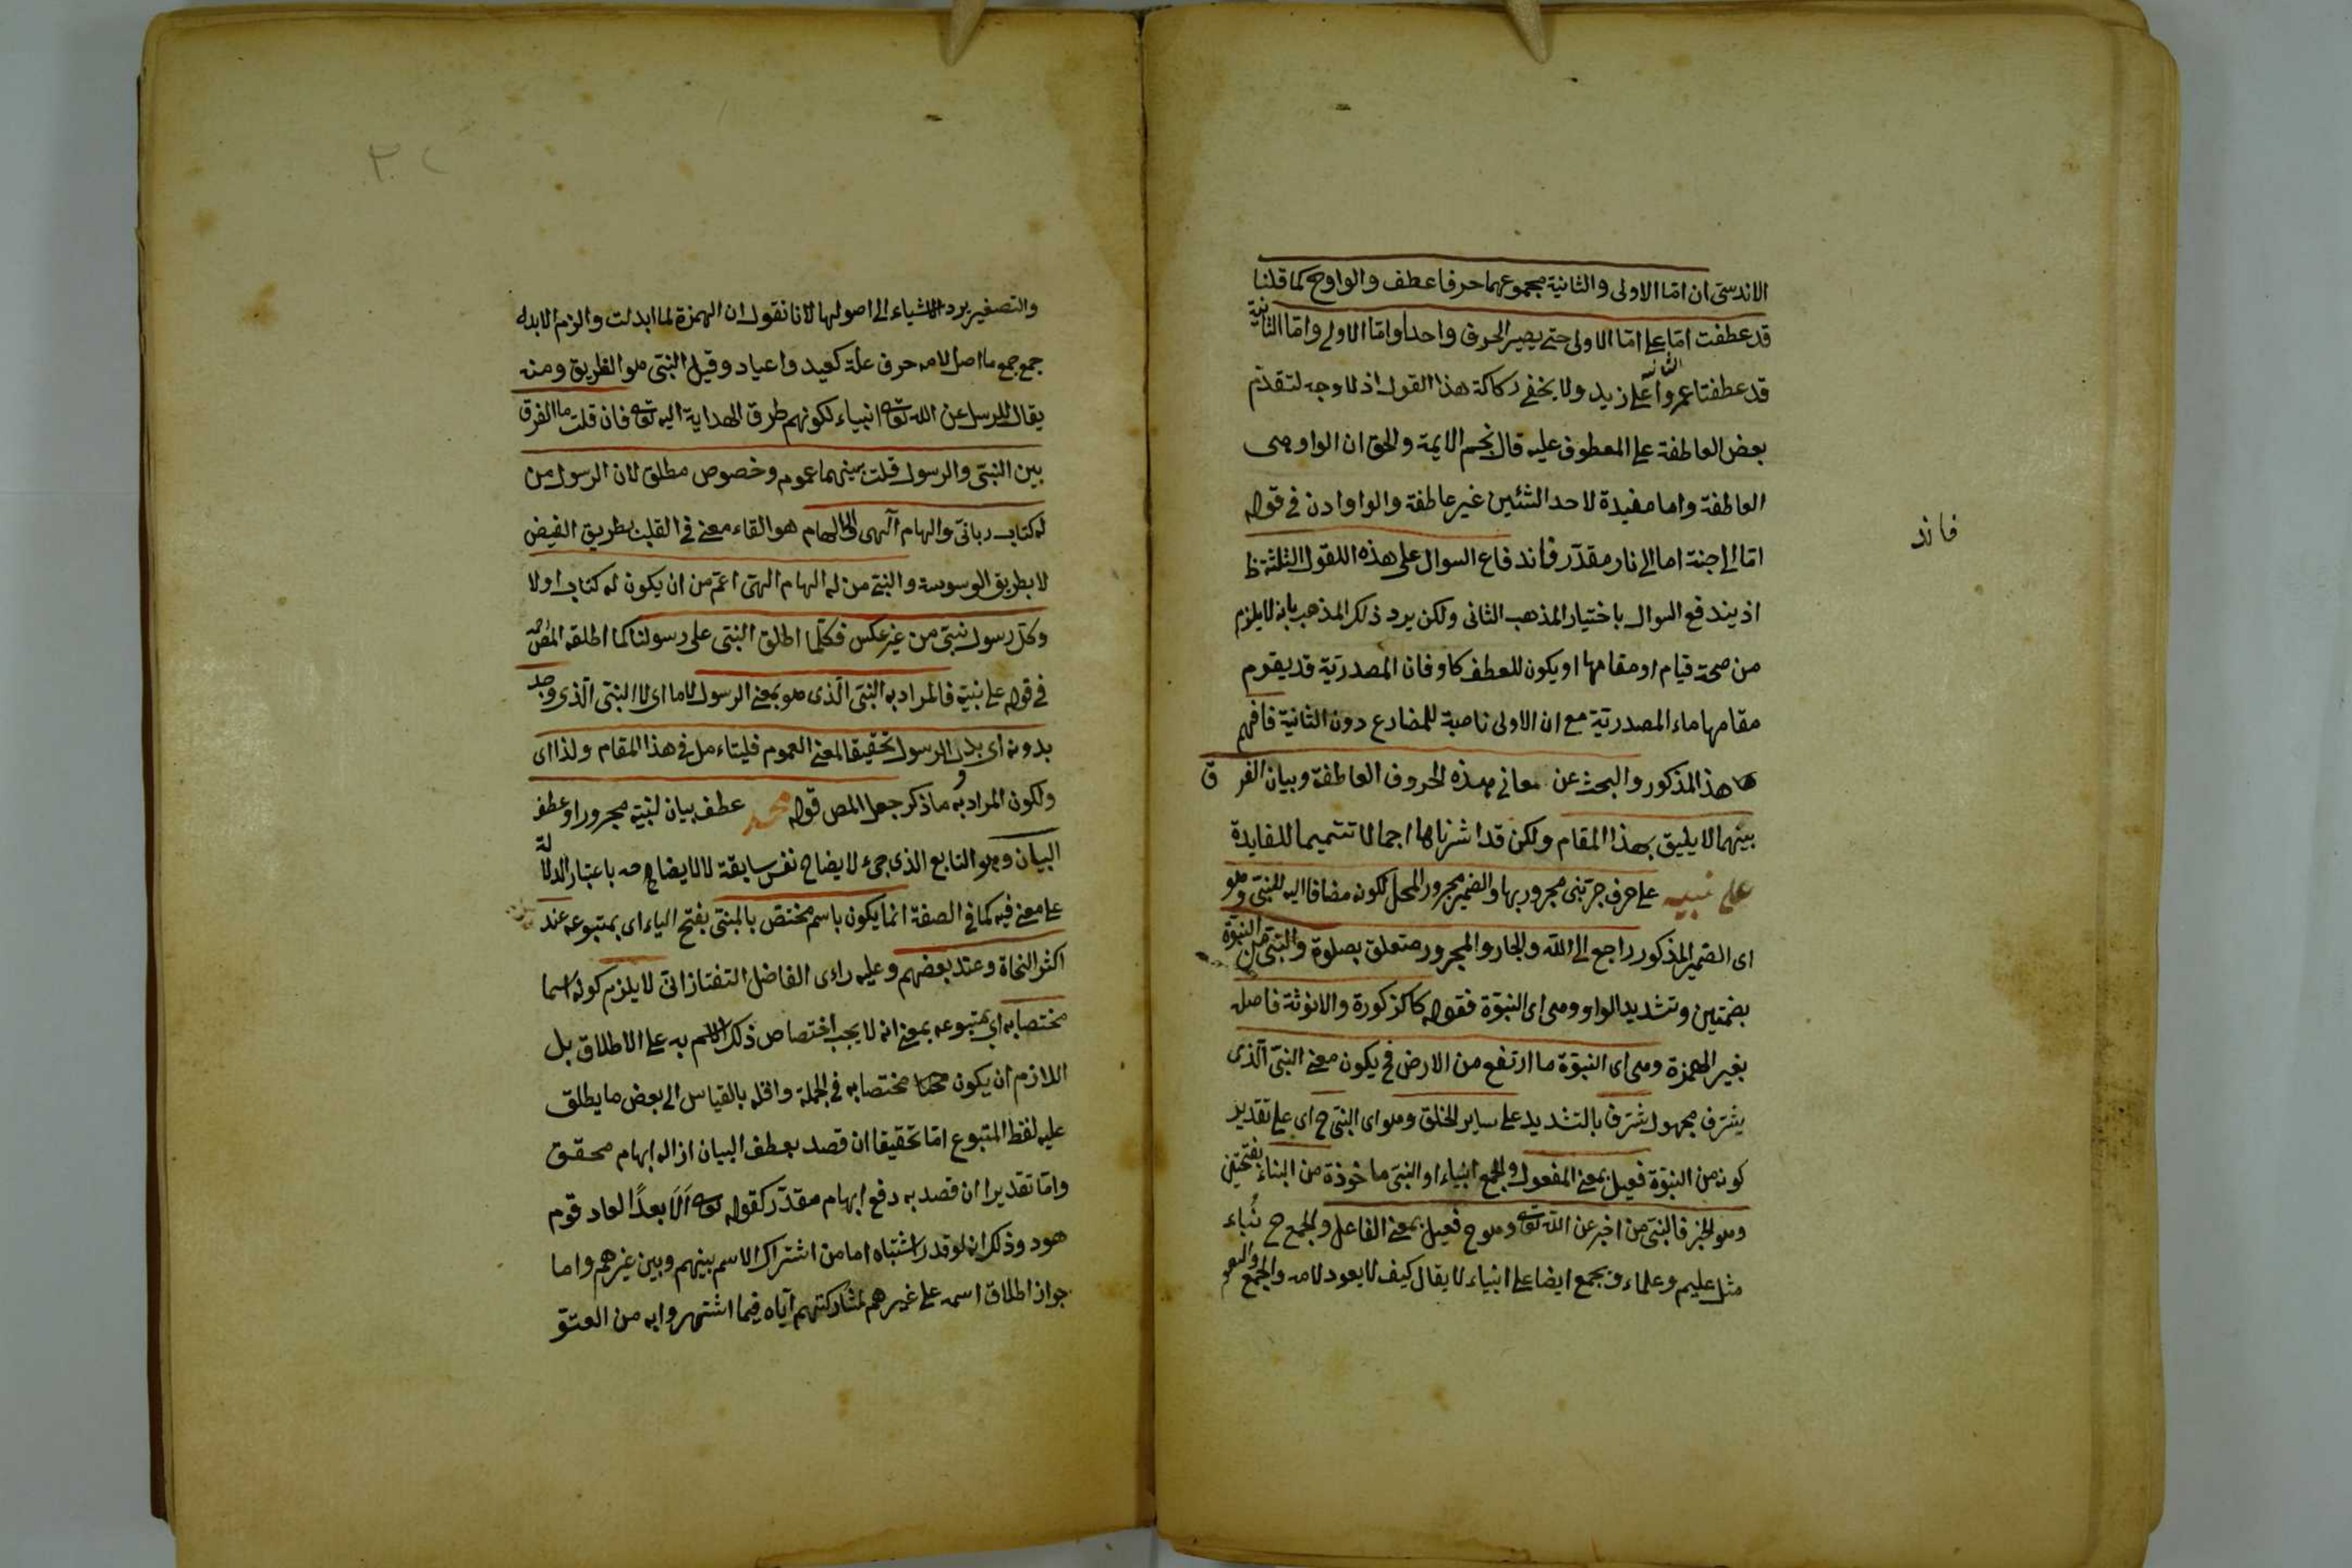 الاندسى ان اما الاولى والثانية مجموعهما حرفا عطف والواو ح كما قلنا
قد عطفت اما على اما الاولى حتى يصير الحرف واحدا واما الاولى واما الثانية
قد عطفتا عمروا على زيد ولا يخفى ركاكة هذا القول اذ لا وجه لتقدم
بعض العاطفة على المعطوف عليه قال نجم الايمة والحق ان الواو هى
العاطفة واما مفيدة لاحد الشئين غير عاطفة والواو اذن فى قوله
اما الى جنة اما الى نار مقدر فاندفاع السوال على هذه النقول الثلثة ظ
فاند
اذ يندفع السوال باختيار المذهب الثانى ولكن يرد ذلك المذهب بانه لا يلزم
من صحة قيام او مقامها او يكون للعطف كاو فان المصدرية قد يقوم
مقامها ماء المصدرية مع ان الاولى ناصبة للمضارع دون الثانية فافهم
هذا المذكور والبحث عن معانى هذه الحروف العاطفة وبيان الفرق
بينهما لا يليق بهذا المقام ولكن قد اشرناها اجمالا تتميما للفايدة
على نبيه على حرف جر نبى مجرور بها والضمير مجرور المحل لكونه مضافا اليه للنبى وهو
اى الضمير المذكور راجع الى الله والجار والمجرور متعلق بصلوة والنبى من النبوة
بضمتين وتشديد الواو وهى اى النبوة فقوله كالذكورة والانوثة فاصله
بغير الهمزة وهى اى النبوة ما ارتفع من الارض فح يكون معنى النبى الذى
يشرف مجهول شرف بالتشديد على ساير الخلق وهو اى النبى ح اى على تقدير
كونه من النبوة فعيل بمعنى المفعول والجمع انبياء او النبى ماخوذة من النباء بفتحتين
وهو الخبر فالنبى من اخبر عن الله تعالى وهو ح فعيل بمعنى الفاعل والجمع ح نباء
مثل عليم وعلماء ويجمع ايضا على انبياء لا يقال كيف لا يعود لامه والجمع
والتصغير يرد الاشياء الى اصولها لانا نقول ان الهمزة لما ابدلت والزم الابدال
جمع جمع ما اصل لامه حرف علة كعيد واعياد وقيل النبى هو الطريق ومنه
يقال للرسل عن الله تعالى انبياء لكونهم طرق الهداية اليه تعالى فان قلت ما الفرق
بين النبى والرسول قلت بينهما عموم وخصوص مطلق لان الرسول من
له كتاب ربانى والهام آلهى والالهام هو القاء معنى فى القلب بطريق الفيض
لا بطريق الوسوسة والنبى من له الهام الهى اعم من ان يكون له كتاب اولا
وكل رسول نبى من غير عكس فكلما اطلق النبى على رسولنا كما اطلقه المص
فى قوله على نبيه فالمراد به النبى الذى هو بمعنى الرسول لا ما اى لا النبى الذى وجد
بدونه اى بدل الرسول تحقيقا لمعنى العموم فليتاءمل فى هذا المقام ولذا اى
ولكون المراد به ما ذكر جعل المص قوله محمد عطف بيان لنبيه مجرورا وعطف
البيان وهو التابع الذى جىء لايضاح نفس سابقة لا لايضاحه باعتبار الدلالة
على معنى فيه كما فى الصفة انما يكون باسم مختص بالمبنى بفتح الياء اى بمتبوعه عند
اكثر النحاة وعند بعضهم وعليه راءى الفاضل التفتازانى لا يلزم كونه اسما
مختصا به اى بمتبوعه بمعنى انه لا يجب اختصاص ذلك الاسم به على الاطلاق بل
اللازم ان يكون مختصا به فى الجملة واقله بالقياس الى بعض ما يطلق
عليه لفظ المتبوع اما تحقيقا ان قصد بعطف البيان ازاله ابهام محقق
واما تقديرا ان قصد به دفع ابهام مقدر كقوله تعالى اَلَا بعدًا لعاد قوم
هود وذلك انه لو قدر اشتباه اما من اشتراك الاسم بينهم وبين غيرهم واما
جواز اطلاق اسمه على غيرهم لمشاركتهم آياه فيما اشتهروا به من العتو